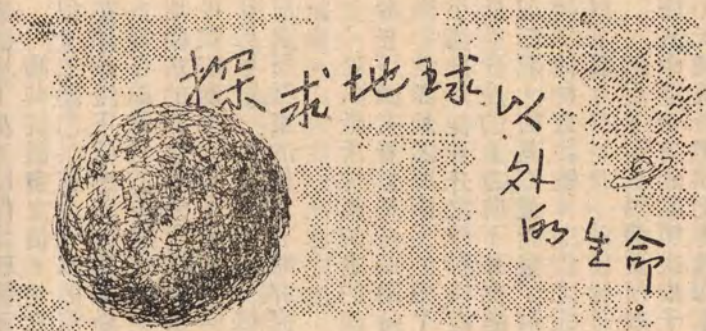 探求地球以外的生命。